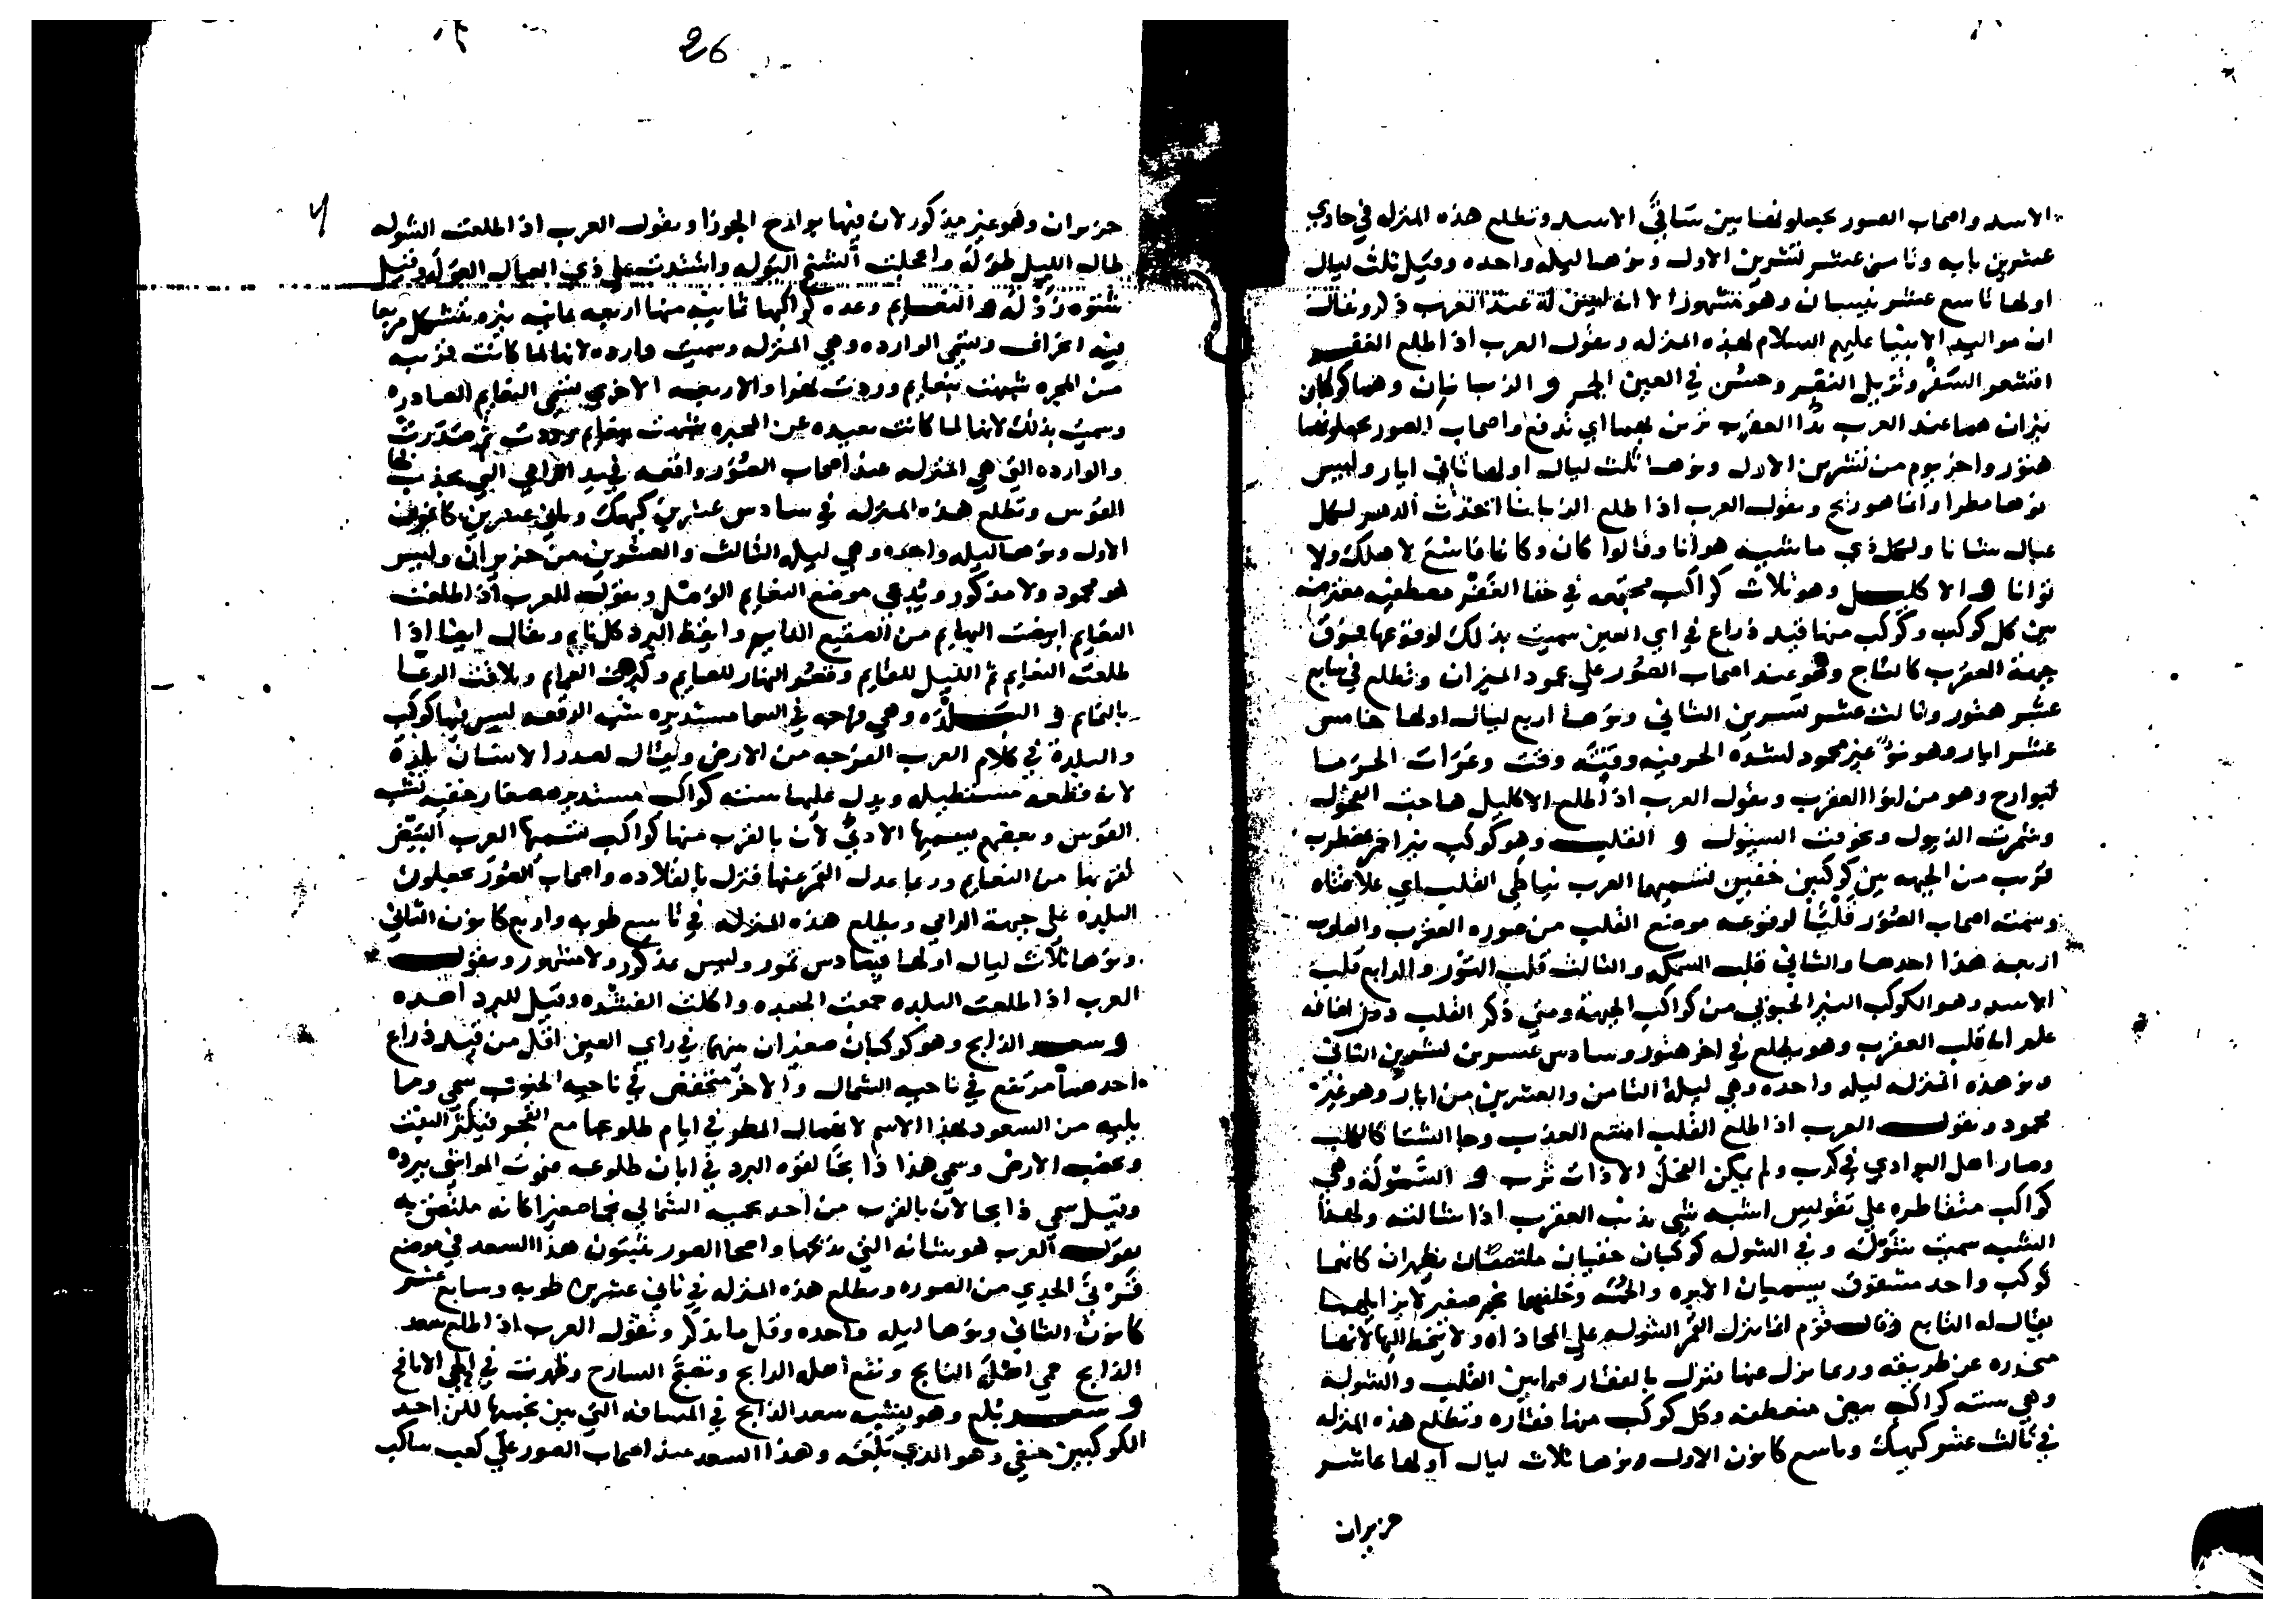 26
الاسد واصحاب الصور يجعلونها بين ساقي الاسد وتطلع هذه المنزله في حادي
عشرين بابه وثامن عشر تشرين الاول ونوها ليله واحده وقيل ثلث ليال
اولها تاسع عشر نيسان وهو مشهور الا انه ليس له عند العرب ذكر ويقال
ان مواليد الانبيا عليهم السلام بهذه المنزله وتقول العرب اذا طلع الغفر
اقشعر السفر وتربل النضر وحسن في العين الجمر و الزبانان وهما كوكبان
نيران هما عند العرب يدا العقرب تزبن بهما اي تدفع واصحاب الصور يجعلونهما
هتور واخر يوم من تشرين الاول ونوها ثلث ليال اولها ثاني ايار وليس
نوها مطرا وانما هو ريح وتقول العرب اذا طلع الزبانا احدثت الدهر لكل
عيال شانا ولكل ذي ماشيه هوانا وقالوا كان وكانا لا هلك ولا
توانا و الاكليل وهو ثلاث كواكب مجتمعه في خفا الغفر مصطفيه معترضه
بين كل كوكب وكوكب منها قيد ذراع في راي العين سميت بذلك لوقوعها فوق
جبهة العقرب كالتاج وهو عند اصحاب الصور على عمود الميزان وتطلع في سابع
عشر هتور وثالث عشر تشرين الثاني ونوها اربع ليال اولها خامس
عشر ايار وهو نو غير محمود لشده الحر فيه وفيه وقت وغرات الحر
البوارح وهو من انوا العقرب وتقول العرب اذا طلع الاكليل هاجت الفحول
وشمرت الذيول وتخوفت السيول و القلب وهو كوكب نير احمر مضطرب
قريب من الجبهه بين كوكبين خفيين تسميهما العرب نياطي القلب اي علاقتاه
وسمته اصحاب الصور قلبا لوقوعه موضع القلب من صوره العقرب والقلوب
اربعه هذا احدها والثاني قلب السمكه والثالث قلب الثور والرابع قلب
الاسد وهو الكوكب النير الجنوبي من كواكب الجبهة ومتي ذكر القلب دون اضافه
علم انه قلب العقرب وهو يطلع في اخر هتور وسادس عشرين تشرين الثاني
ونو هذه المنزله ليله واحده وهي ليلة الثامن والعشرين من ايار وهو غير
محمود وتقول العرب اذا طلع القلب امتنع العذب وجا الشتا كالكلب
وصار اهل البوادي في كرب ولم يمكن الفحل الا ذات ثرب و الشوله وهي
كواكب متقاطره علي تقويس اشبه شي بذنب العقرب اذا شالته ولهذا
الشبه سميت شوله وفي الشوله كوكبان خفيان ملتصقان يظهران كانهما
كوكب واحد مشقوق يسميان الابره والحمه وخلفهما نجم صغير لا يزايلهما
يقال له التابع وقال قوم انما ينزل القمر الشوله علي المحاذاه ولا ينحط اليها لانها
منحدره عن طريقه وربما نزل عنها فنزل بالفقار فيما بين القلب والشوله
وهي سته كواكب بيض منعطفه وكل كوكب منها فقاره وتطلع هذه المنزله
في ثالث عشر كيهك وتاسع كانون الاول ونوها ثلاث ليال اولها عاشر
حزيران
حزيران وهو غير مذكور لان فيها بوارح الجوزا وتقول العرب اذا طلعت الشوله
طال الليل طوله واعجلت الشيخ البوله واشتدت علي ذي العيال العوله وقيل
شتوه زوله و النعايم وعده كواكبها ثمانيه منها اربعه يمانيه نيره بشكل مربعا
فيه انحراف وتسمي الوارده وهي المنزله وسميت وارده لانها لما كانت قريبه
من المجره شبهت بنعايم وردت نهرا والاربعه الاخري تسمي النعايم الصادره
وسميت بذلك لانها لما كانت بعيده عن المجره شبهت بنعايم وردت ثم صدرت
والوارده التي هي المنزله عند اصحاب الصور واقعه في يد الرامي التي يجذب بها
القوس وتطلع هذه المنزله في سادس عشرين كيهك وثاني عشرين كانون
الاول ونوها ليله واحده وهي ليله الثالث والعشرين من حزيران وليس
هو محمود ولا مذكور ويدعي موضع النعايم الوصل وتقول العرب اذا طلعت
النعايم ابيضت البهايم من الصقيع الدايم وايقظ البرد كل نايم ويقال ايضا اذا
طلعت النعايم تم الليل للقايم وقصر النهار للصايم وكبرت العمايم وتلاقت الرعا
بالتمايم و البلده وهي فرجه في السما مستديره شبه الرقعه ليس فيها كوكب
والبلدة في كلام العرب الفرجه من الارض ويقال لصدر الانسان بلده
لانه قطعه مستطيله ويدل عليها سته كواكب مستديره صغار خفيه تشبه
القوس وبعضهم يسميها الادحي لان بالقرب منها كواكب تسميها العرب البيض
لقربها من النعايم وربما عدل القمر عنها فنزل بالقلاده واصحاب الصور يجعلون
البلده علي جبهة الرامي وتطلع هذه المنزله في تاسع طوبه ورابع كانون الثاني
ونوها ثلاث ليال اولها سادس تموز وليس بمذكور ولا مشهور وتقول
العرب اذا طلعت البلده حممت الجعده واكلت القشده وقيل للبرد اهده
و سعد الذابح وهو كوكبان صغيران بينهما في راي العين اقل من قيد ذراع
احدهما مرتفع في ناحيه الشمال والاخر منخفض في ناحيه الجنوب سمي وما
يليه من السعود بهذا الاسم لاتصال المطر في ايام طلوعها مع الفجر فيكثر النبت
وتخصب الارض وسمي هذا ذابحا لقوه البرد في ابان طلوعه فتموت المواشي ببرده
وقيل سمي ذابحا لان بالقرب من احد نجميه الشمالي نجما صغيرا كانه ملتصق به
تقول العرب هو شاته التي يذبحها واصحاب الصور يثبتون هذا السعد في موضع
قرني الجدي من الصوره وتطلع هذه المنزله في ثاني عشرين طوبه وسابع عشر
كانون الثاني ونوها ليله واحده وقل ما يذكر وتقول العرب اذا طلع سعد
الذابح حمي اهله النابح ونفع اهله الرابح وتصبح السارح وظهرت في الحي الانافح
و سعد بلع وهو يشبه سعد الذابح في المسافه التي بين نجميها لكن احد
الكوكبين خفي وهو الذي بلعه وهذا السعد عند اصحاب الصور علي كعب ساكب